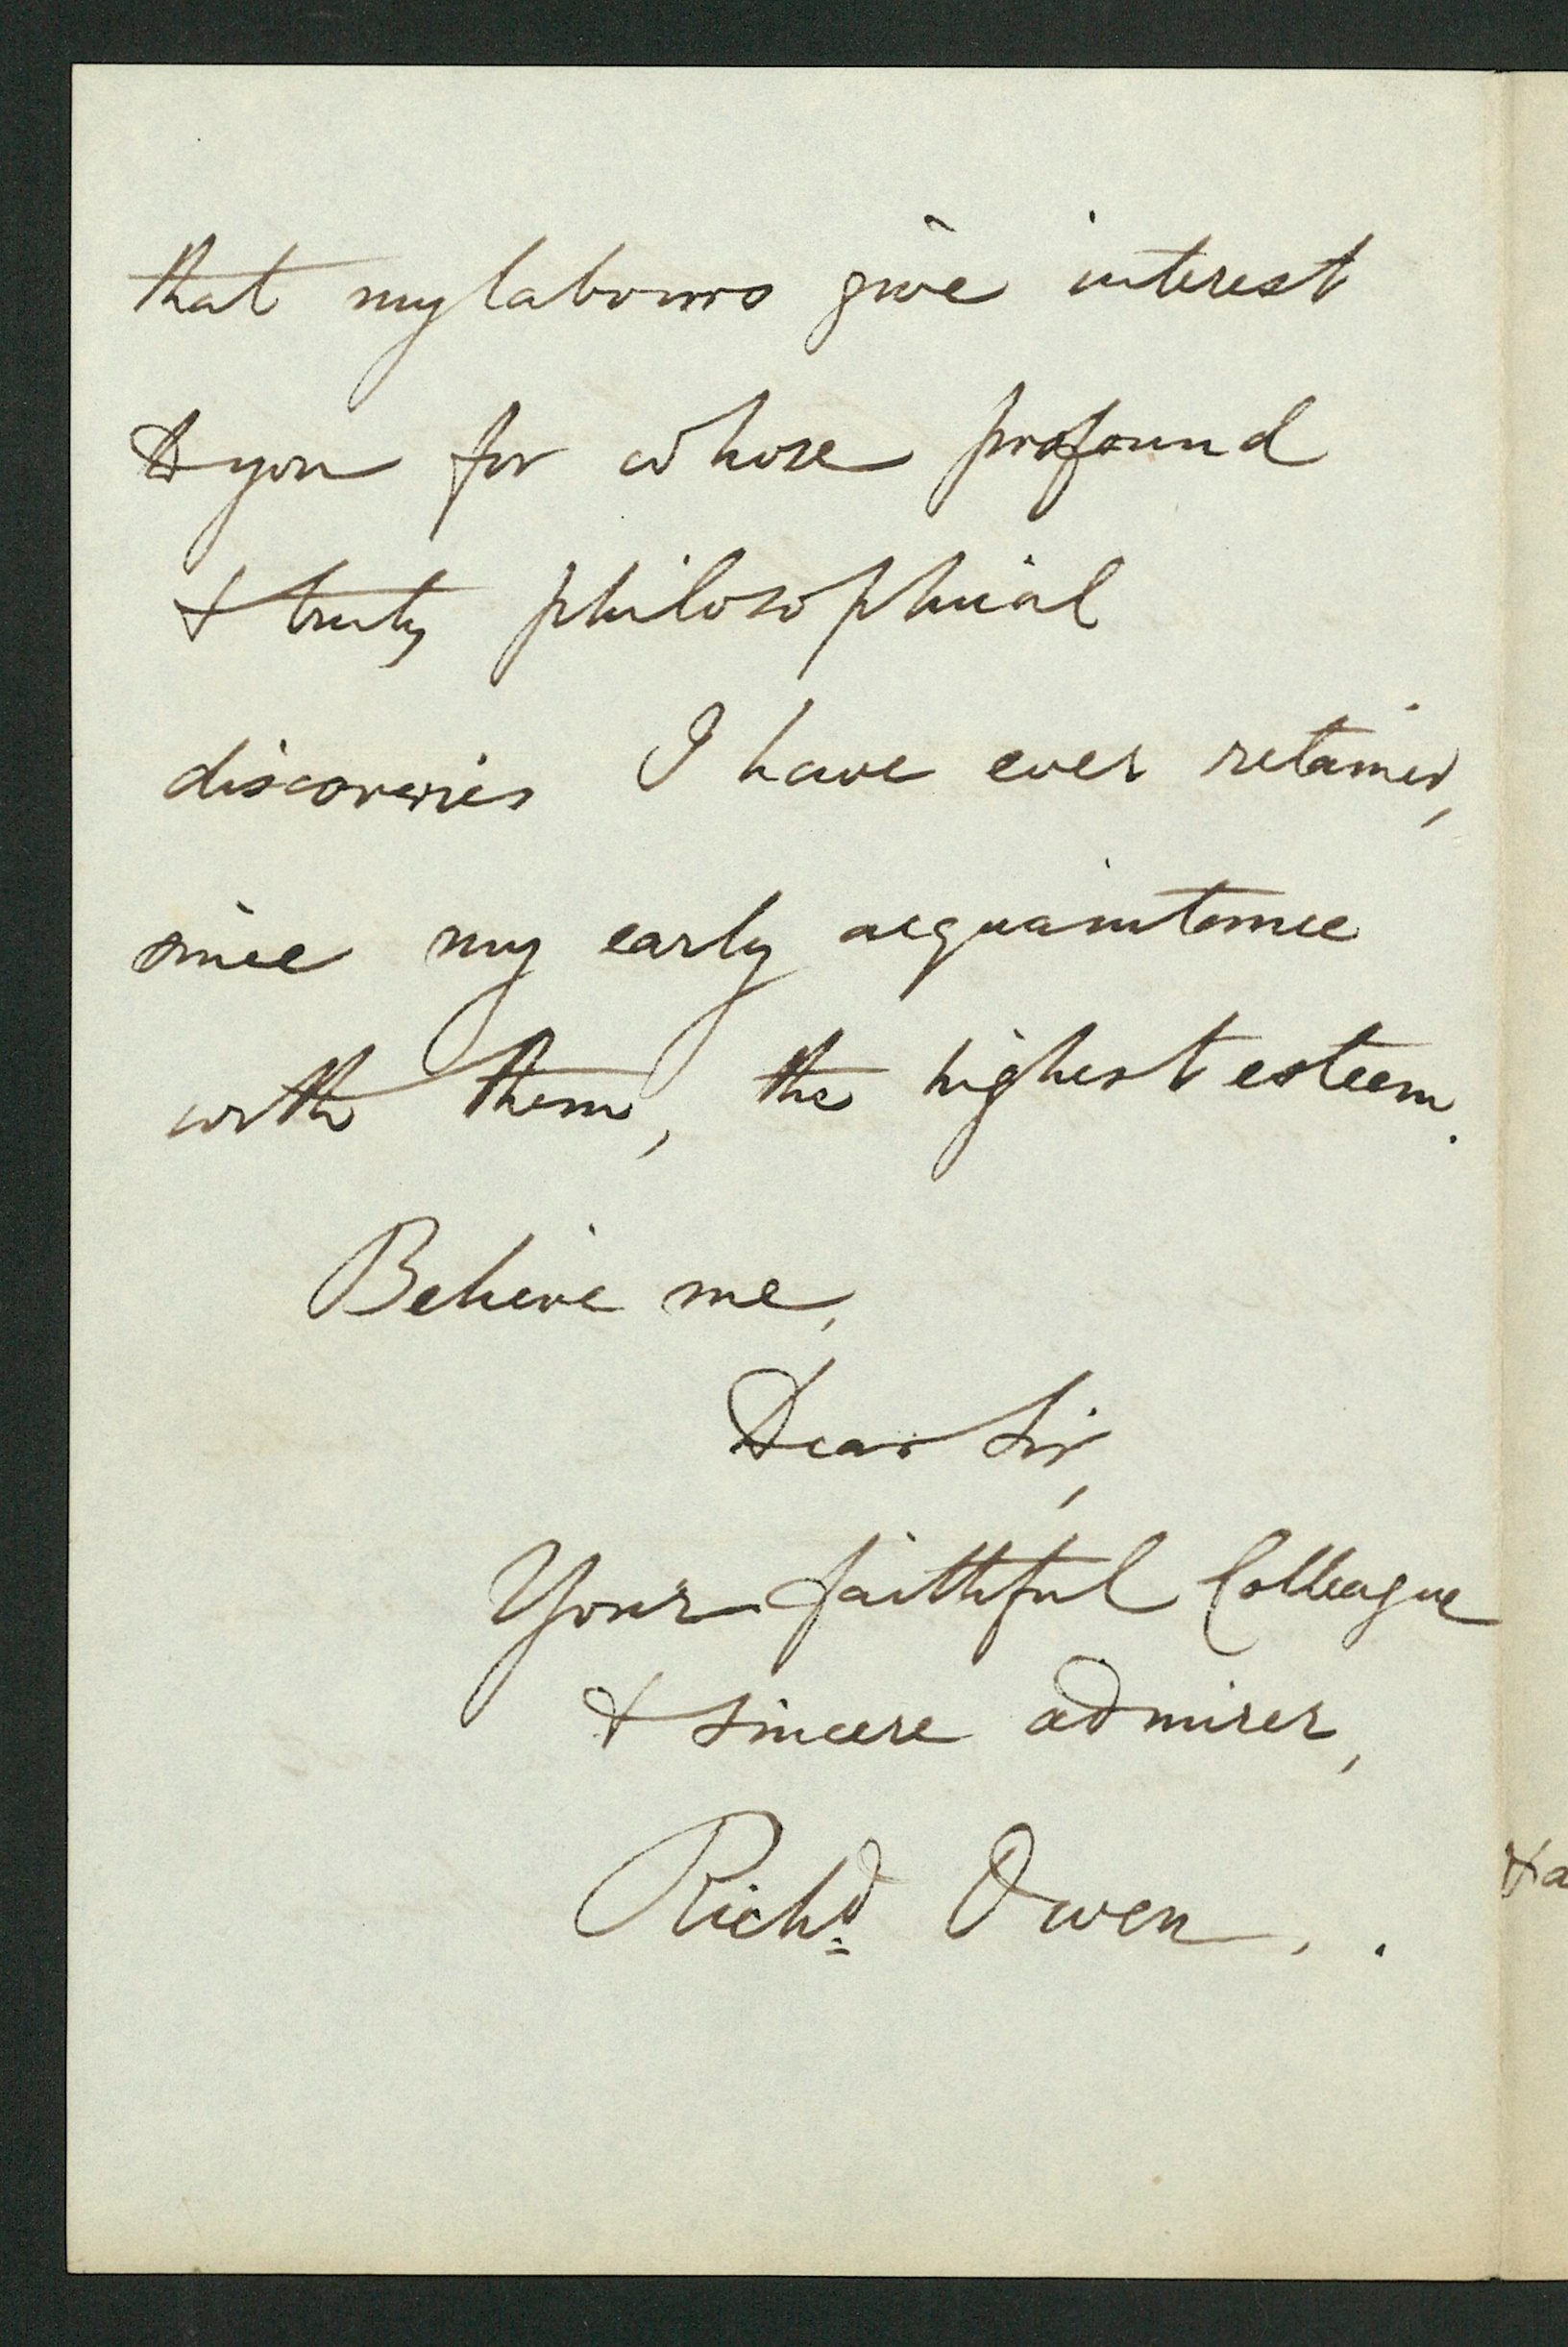 that my labours give interest
to you for whose profound
& truly philosophical
discoveries I have ever retained,
since my early acquaintance
with them, the highest esteem.
Believe me,
Dear Sir,
Your faithful Colleague
& sincere admirer,
Richd Owen . .
& a